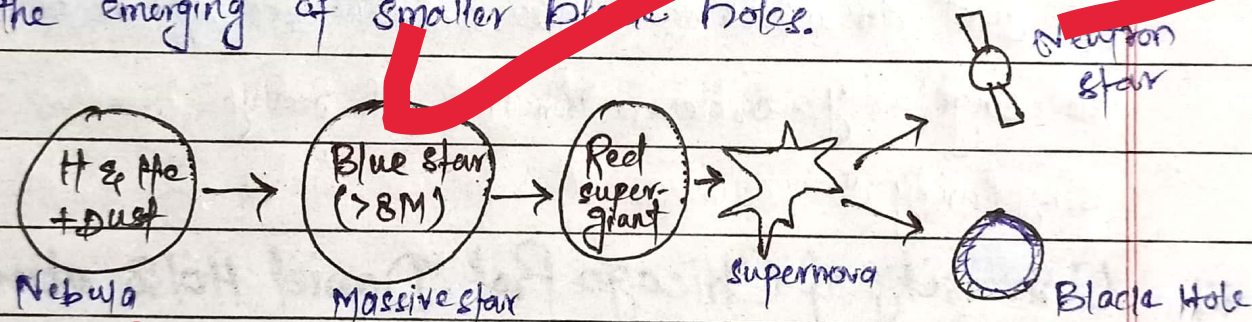 the emerging of smaller black holes.
Newtron
star
H & He
+ Dust
Nebula
Blue star
(>8M)
Massive star
Red
super-
giant
supernova
Black Hole